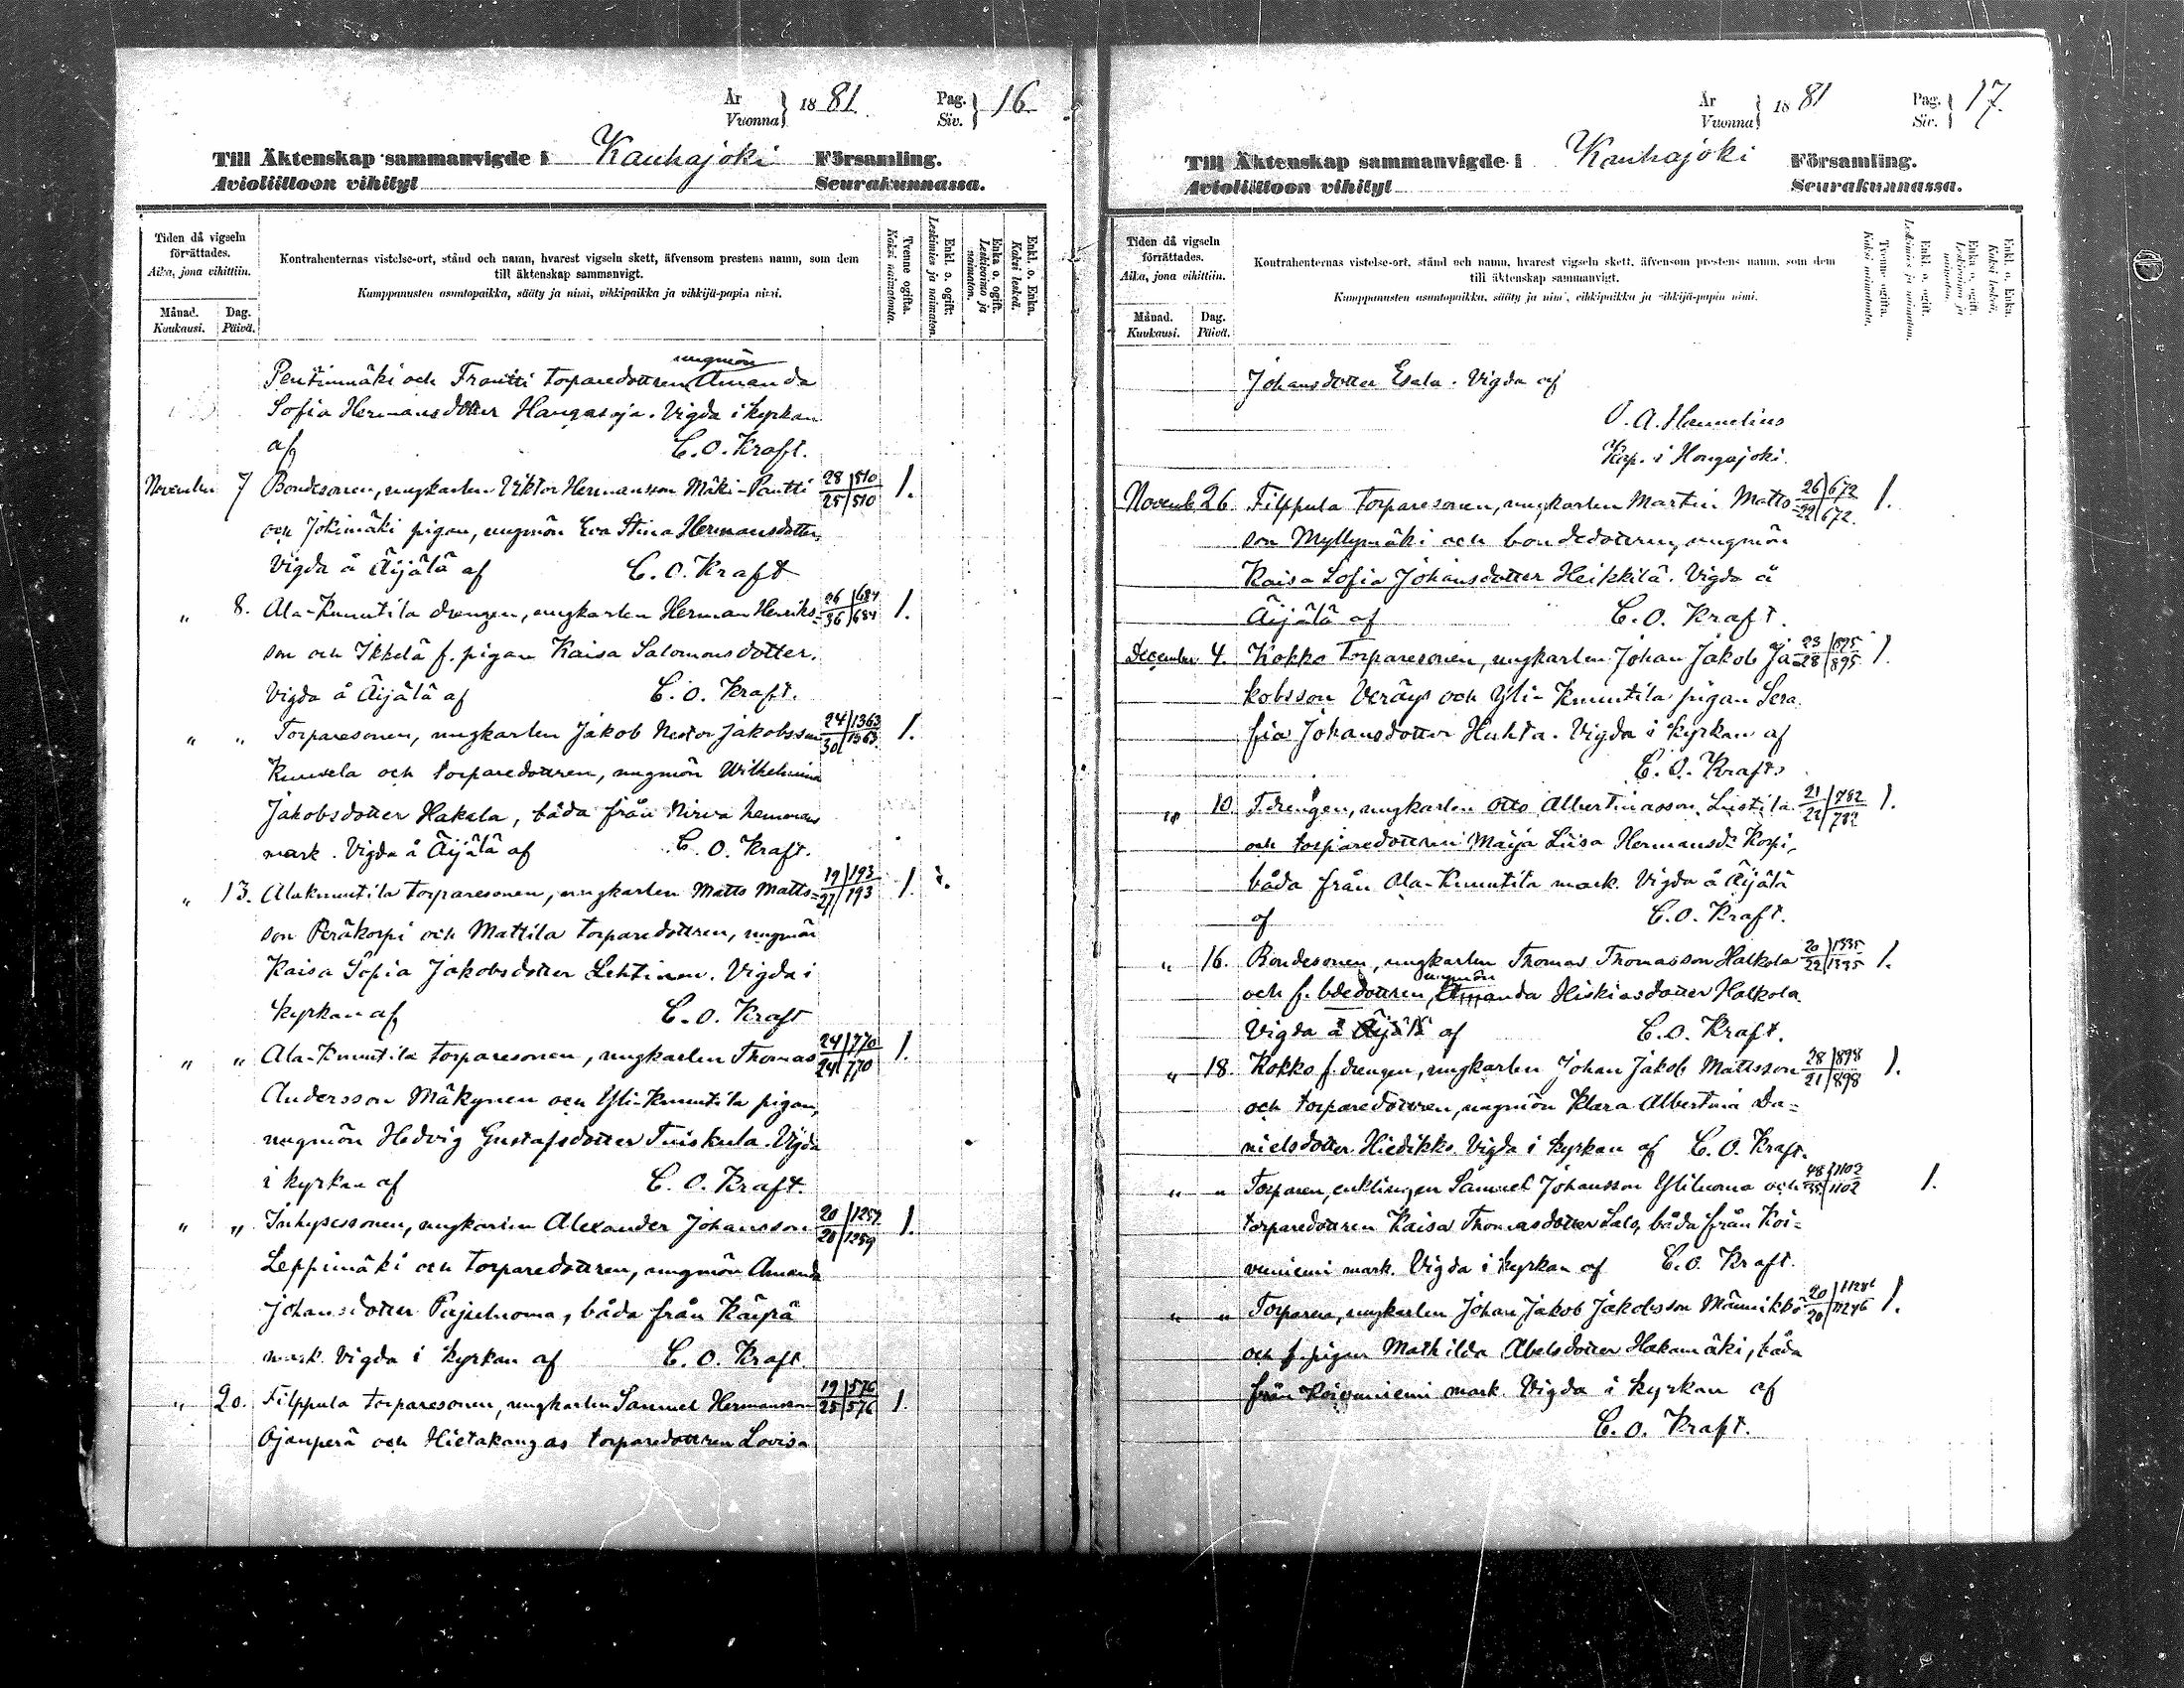 År
Vuonna } 1881. Pag.
Siv. } 16
Till Äktenskap sammanvigde i Kauhajoki Församling.
Avioliittoon vihityt Seurakunnassa.
Tiden då vigseln förrättades.
Aika, jona vihittiin.
Månad.
Kuukausi.
Dag.
Päivä.
Kontrahenternas vistelse-ort, stånd och namn, hvarest vigseln skett, äfvensom prestens namn, som dem
till äktenskap sammanvigt.
Kumppanusten asuntopaikka, sääty ja nimi, vihkipaikka ja vihkijä-papin nimi.
Tvenne ogifta.
Kaksi naimatonta.
Enkl. o. ogift.
Leskimies ja naimaton.
Enka o. ogift.
Leskivaimo ja naimaton.
Enkl. o. Enka.
Kaksi leskeä.
ungmön
Penttinmäki och Frantti torparedottren Amanda
Sofia Hermansdotter Hangasoja. Vigda i kyrkan
af C. O. Kraft.
November 7 Bondesonen, ungkarlen Viktor Hermansson Mäki-Pantti 28/510 25/510 1.
och Jokimäki pigan, ungmön Eva Stina Hermansdotter,
Vigda å Äijälä af C. O. Kraft
" 8. Ala-Knuutila drengen, ungkarlen Herman Henriks= 26/684 36/684 1.
son och Ikkelä f. pigan Kaisa Salomonsdotter.
Vigda å Äijälä af C. O. Kraft.
" " Torparesonen, ungkarlen Jakob Nestor Jakobsson 24/1363 30/1363 1.
och torparedottren, ungmön Wilhelmina
Jakobsdotter Hakala, båda från Nirva hemmans
mark. Vigda å Äijälä af C. O. Kraft.
" 13. Alaknuutila torparesonen, ungkarlen Matts Matts= 19/193 27/193 1.
son Peräkorpi och Mattila torparedottren, ungmön
Kaisa Sofia Jakobsdotter Lehtinen. Vigda i
kyrkan af C. O. Kraft
" " Ala-Knuutila torparesonen, ungkarlen Thomas 24/770 24/770 1.
Andersson Mäkynen och Yli-Knuutila pigan,
ungmön Hedvig Gustafsdotter Tuiskula. Vigda
i kyrkan af C. O. Kraft.
" " Inhysessonen, ungkarlen Alexander Johansson 20/1259 20/1259 1.
Leppimäki och torparedottren, ungmön Amanda
Johansdotter Pajuluoma, båda från Käyrä
mark. Vigda i kyrkan af C. O. Kraft
" 20. Filppula torparesonen, ungkarlen Samuel Hermansson 19/576 25/576 1.
Ojanperä och Hietakangas torparedottren Lovisa
År
Vuonna } 1881 Pag.
Siv. } 17.
Till Äktenskap sammanvigde i Kauhajoki Församling.
Avioliittoon vihityt Seurakunnassa.
Tiden då vigseln förrättades.
Aika, jona vihittiin.
Månad.
Kuukausi.
Dag.
Päivä.
Kontrahenternas vistelse-ort, stånd och namn, hvarest vigseln skett, äfvensom prestens namn, som dem
till äktenskap sammanvigt.
Kumppanusten asuntopaikka, sääty ja nimi, vihkipaikka ja vihkijä-papin nimi.
Tvenne ogifta.
Kaksi naimatonta.
Enkl. o. ogift.
Leskimies ja naimaton.
Enka o. ogift.
Leskivaimo ja naimaton.
Enkl. o. Enka.
Kaksi leskeä.
Johansdotter Esala. Vigda af
O. A. Hannelius
Kap. i Hongajoki.
Novemb. 26. Filppula torparesonen, ungkarlen Martin Matts= 26/672 22/672. 1.
son Myllymäki och bondedottren, ungmön
Kaisa Sofia Johansdotter Heikkilä. Vigda å
Äijälä af C. O. Kraft.
December 4. Kokko torparesonen, ungkarlen Johan Jakob Ja= 23/895 28/895 1.
kobsson Veräys och Yli-Knuutila pigan Sera
fia Johansdotter Huhta. Vigda i kyrkan af
C. O. Kraft.
" 10. F. drengen, ungkarlen Otto Albertinasson Lustila 21/782 22/782 1.
och torparedottren Maija Liisa Hermansdr Korpi,
båda från Ala-Knuutila mark. Vigda å Äijälä
af C. O. Kraft.
" 16. Bondesonen, ungkarlen Thomas Thomasson Halkola 20/1335 22/1335 1.
ungmön
och f. bdedottren, Amanda Hiskiasdotter Halkola.
Vigda å Äijälä af C. O. Kraft.
" 18. Kokko f. drengen, ungkarlen Johan Jakob Mattsson 28/898 21/898 1.
och torparedottren, ungmön Klara Albertina Da=
nielsdotter Hiedikko. Vigda i kyrkan af C. O. Kraft.
" " Torparen, enklingen Samuel Johansson Yliluoma och 48/1102 35/1102 1.
torparedottren Kaisa Thomasdotter Salo, båda från Koi=
vuniemi mark. Vigda i kyrkan af C. O. Kraft.
" " Torparen, ungkarlen Johan Jakob Jakobsson Männikkö 1.
och f. pigan Mathilda Abelsdotter Hakamäki, båda
från Koivuniemi mark. Vigda i kyrkan af
C. O. Kraft.